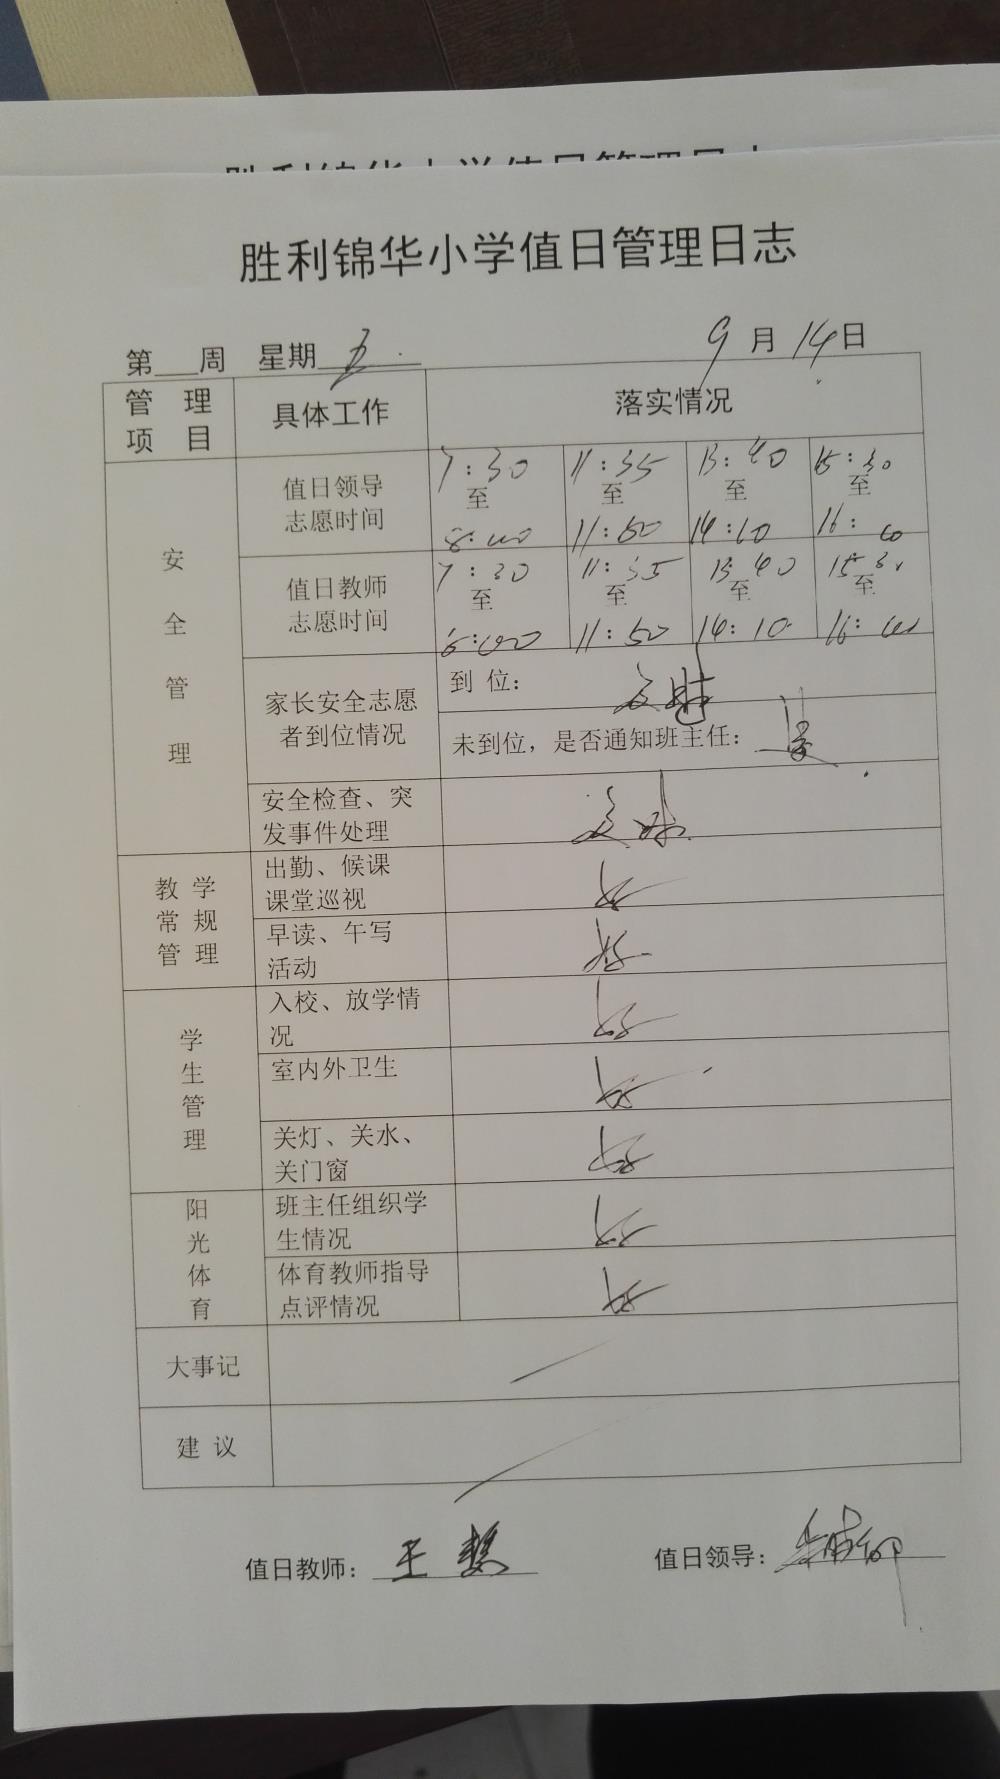 胜利锦华小学值日管理日志
胜利锦华小学值日管理日志
第___周 星期五 9月14日
管理项目 具体工作 落实情况
安全管理
值日领导
志愿时间
7:30 至 8:00
11:35 至 11:50
13:40 至 14:10
15:30 至 16:
值日教师
志愿时间
7:30 至
11:35 至 11:50
13:40 至 14:10
15:3 至 16:
家长安全志愿
者到位情况
到 位：
未到位，是否通知班主任：
安全检查、突
发事件处理
教学
常规
管理
出勤、候课
课堂巡视
好
早读、午写
活动
好
学生管理
入校、放学情
况
好
室内外卫生
好
关灯、关水、
关门窗
好
阳光体育
班主任组织学
生情况
好
体育教师指导
点评情况
好
大事记
建 议
值日教师：王 值日领导：